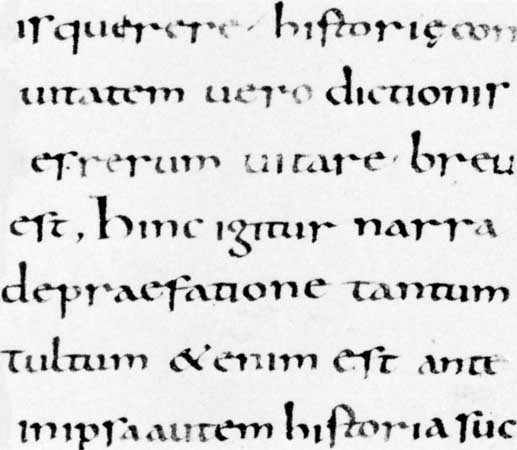 is querere · historię con
uitatem uero dictionis
es rerum uitare · breu
est, hinc igitur narra
depraefatione tantum
tultum &enim est ante
inipsa autem historia suc